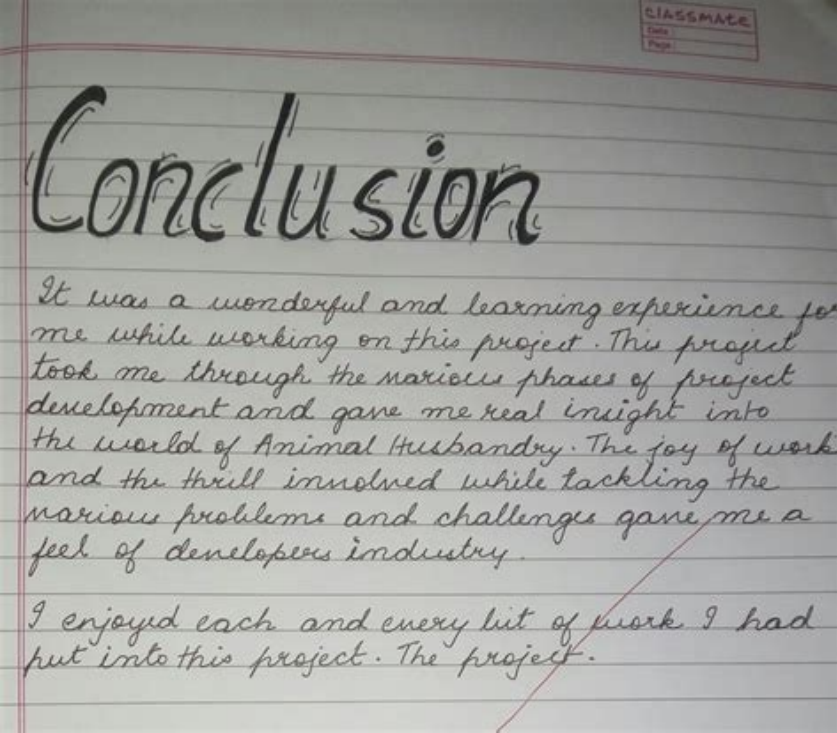 classmate
Date
Page
Conclusion
It was a wonderful and learning experience for
me while working on this project. This project
took me through the various phases of project
development and gave me real insight into
the world of Animal Husbandry. The joy of work
and the thrill involved while tackling the
various problems and challenges gave me a
feel of developers industry.
I enjoyed each and every bit of work I had
put into this project. The project.